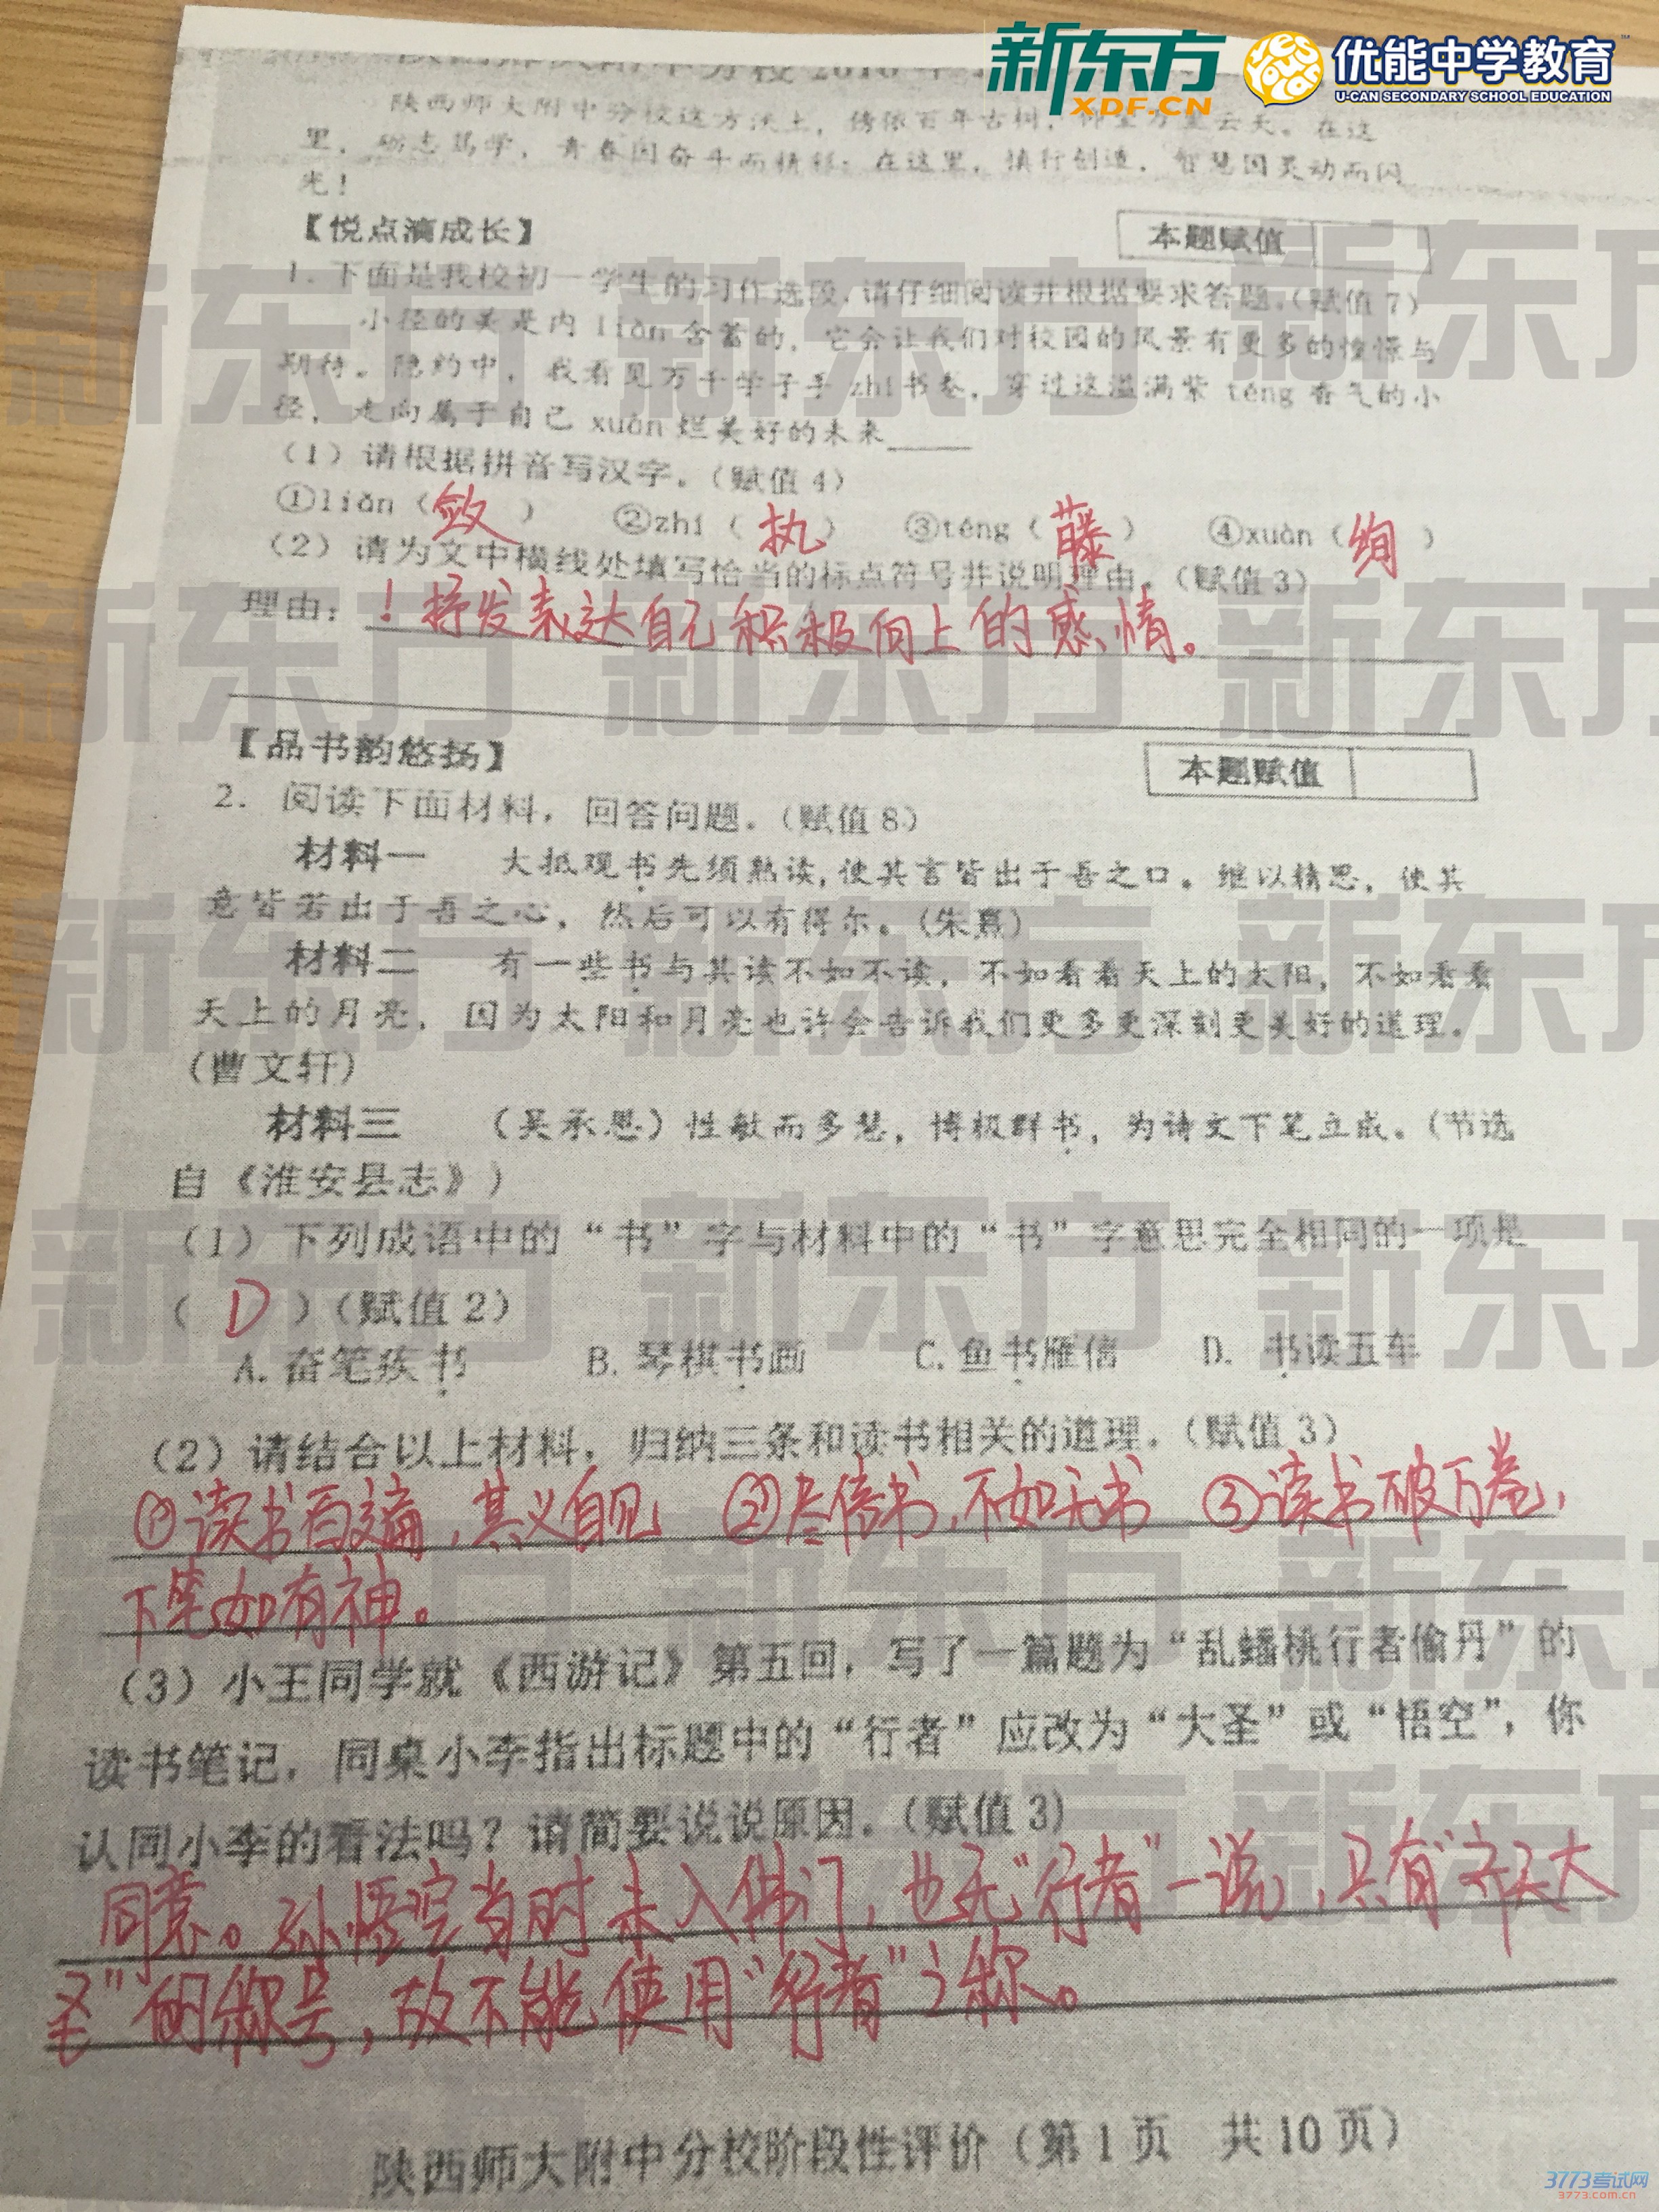 新东方 XDF.CN 优能中学教育 U-CAN SECONDARY SCHOOL EDUCATION
陕西师大附中分校这方沃土，倚依百年古树，仰望万里云天。在这
里，砺志笃学，青春因奋斗而精彩；在这里，慎行创造，智慧因灵动而闪
光！
【悦点滴成长】 本题赋值
1.下面是我校初一学生的习作选段，请仔细阅读并根据要求答题。（赋值7）
小径的美是内 liǎn 含蓄的，它会让我们对校园的风景有更多的憧憬与
期待。隐约中，我看见万千学子手 zhí 书卷，穿过这溢满紫 téng 香气的小
径，走向属于自己 xuàn 烂美好的未来_____
（1）请根据拼音写汉字。（赋值4）
①liǎn（敛） ②zhí（执） ③téng（藤） ④xuàn（绚）
（2）请为文中横线处填写恰当的标点符号并说明理由。（赋值3）
理由：！抒发表达自己积极向上的感情。
【品书韵悠扬】 本题赋值
2. 阅读下面材料，回答问题。（赋值8）
材料一 大抵观书先须熟读，使其言皆出于吾之口。继以精思，使其
意皆若出于吾之心，然后可以有得尔。（朱熹）
材料二 有一些书与其读不如不读，不如看看天上的太阳，不如看看
天上的月亮，因为太阳和月亮也许会告诉我们更多更深刻更美好的道理。
（曹文轩）
材料三 （吴承恩）性敏而多慧，博极群书，为诗文下笔立成。（节选
自《淮安县志》）
（1）下列成语中的“书”字与材料中的“书”字意思完全相同的一项是
（ D ）（赋值2）
A. 奋笔疾书 B. 琴棋书画 C. 鱼书雁信 D. 书读五车
（2）请结合以上材料，归纳三条和读书相关的道理。（赋值3）
①读书百遍，其义自见 ②尽信书，不如无书 ③读书破万卷，
下笔如有神。
（3）小王同学就《西游记》第五回，写了一篇题为“乱蟠桃行者偷丹”的
读书笔记，同桌小李指出标题中的“行者”应改为“大圣”或“悟空”，你
认同小李的看法吗？请简要说说原因。（赋值3）
同意。孙悟空当时未入佛门，也无“行者”一说，只有“齐天大
圣”的称号，故不能使用“行者”之称。
陕西师大附中分校阶段性评价（第1页 共10页）
3773考试网
3773.com.cn